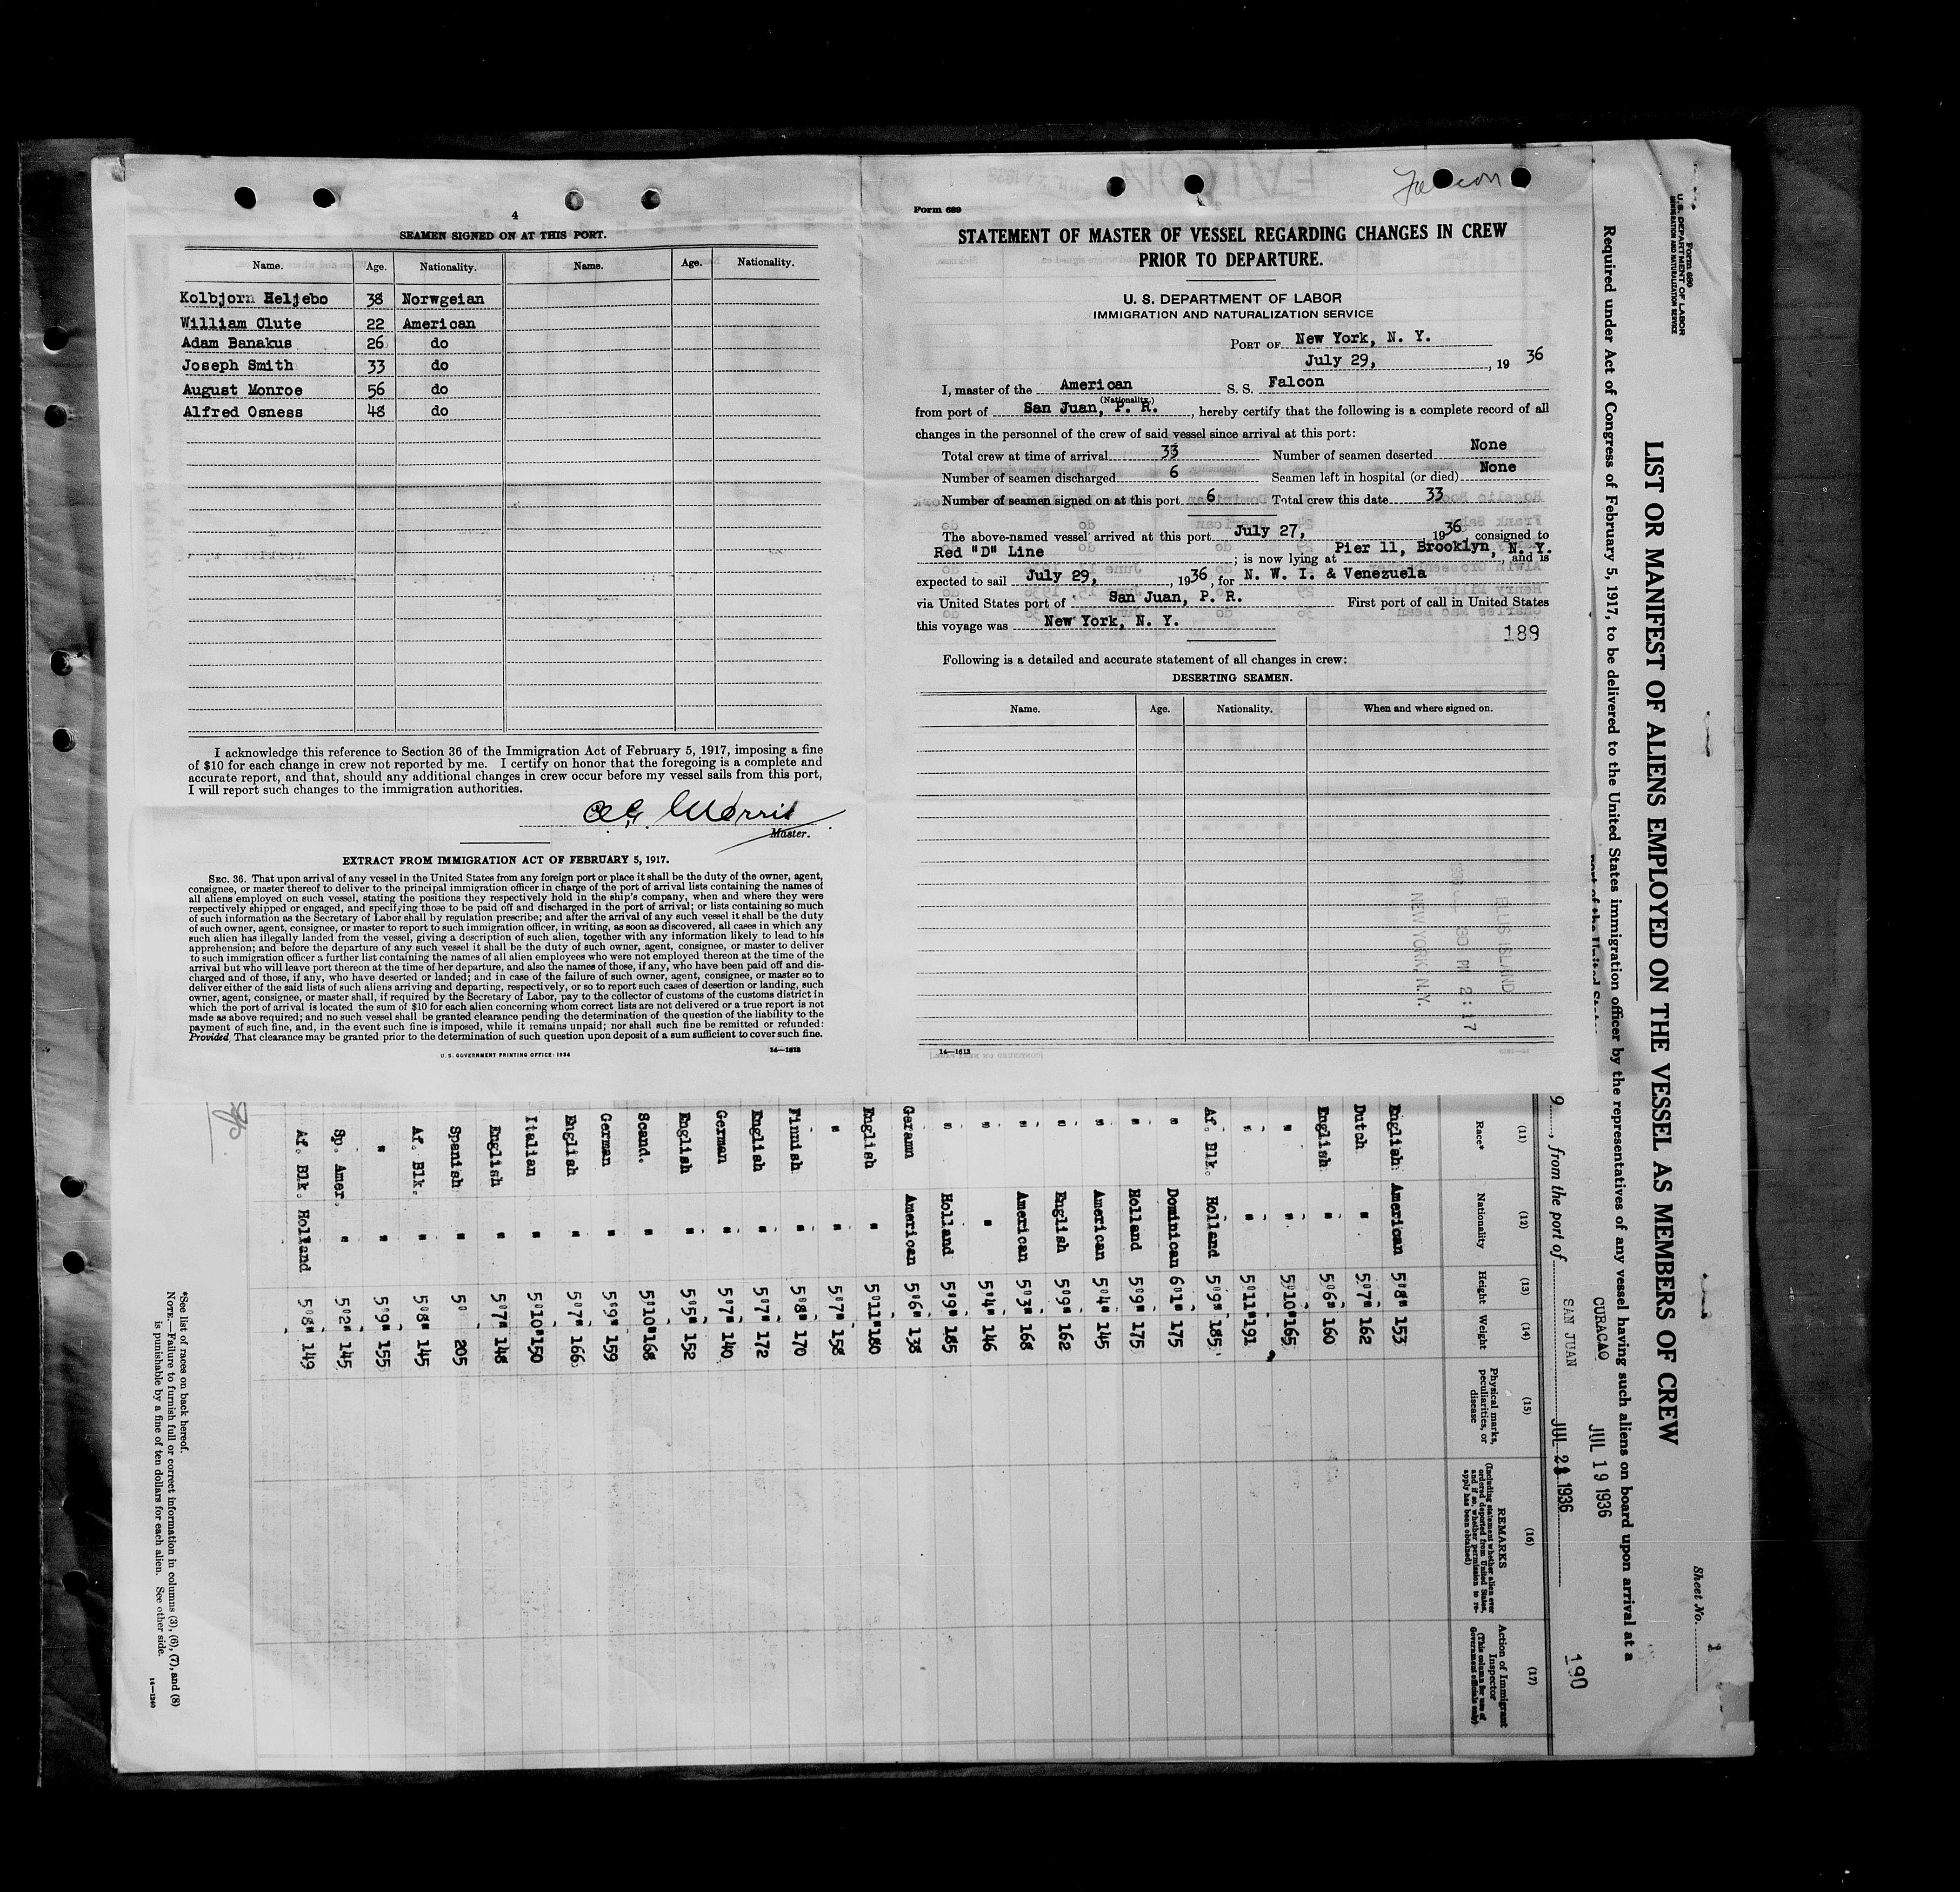 4
SEAMEN SIGNED ON AT THIS PORT.
Name. Age. Nationality. Name. Age. Nationality.
Kolbjorn Heljebo 38 Norwgeian
William Clute 22 American
Adam Banakus 26 do
Joseph Smith 33 do
August Monroe 56 do
Alfred Osness 48 do
I acknowledge this reference to Section 36 of the Immigration Act of February 5, 1917, imposing a fine
of $10 for each change in crew not reported by me. I certify on honor that the foregoing is a complete and
accurate report, and that, should any additional changes in crew occur before my vessel sails from this port,
I will report such changes to the immigration authorities.
Morris
Master.
EXTRACT FROM IMMIGRATION ACT OF FEBRUARY 5, 1917.
SEC. 36. That upon arrival of any vessel in the United States from any foreign port or place it shall be the duty of the owner, agent,
consignee, or master thereof to deliver to the principal immigration officer in charge of the port of arrival lists containing the names of
all aliens employed on such vessel, stating the positions they respectively hold in the ship's company, when and where they were
respectively shipped or engaged, and specifying those to be paid off and discharged in the port of arrival; or lists containing so much
of such information as the Secretary of Labor shall by regulation prescribe; and after the arrival of any such vessel it shall be the duty
of such owner, agent, consignee, or master to report to such immigration officer, in writing, as soon as discovered, all cases in which any
such alien has illegally landed from the vessel, giving a description of such alien, together with any information likely to lead to his
apprehension; and before the departure of any such vessel it shall be the duty of such owner, agent, consignee, or master to deliver
to such immigration officer a further list containing the names of all alien employees who were not employed thereon at the time of the
arrival but who will leave port thereon at the time of her departure, and also the names of those, if any, who have been paid off and dis-
charged and of those, if any, who have deserted or landed; and in case of the failure of such owner, agent, consignee, or master so to
deliver either of the said lists of such aliens arriving and departing, respectively, or so to report such cases of desertion or landing, such
owner, agent, consignee, or master shall, if required by the Secretary of Labor, pay to the collector of customs of the customs district in
which the port of arrival is located the sum of $10 for each alien concerning whom correct lists are not delivered or a true report is not
made as above required; and no such vessel shall be granted clearance pending the determination of the question of the liability to the
payment of such fine, and, in the event such fine is imposed, while it remains unpaid; nor shall such fine be remitted or refunded:
Provided, That clearance may be granted prior to the determination of such question upon deposit of a sum sufficient to cover such fine.
U. S. GOVERNMENT PRINTING OFFICE: 1934 14—1613
Falcon
Form 689
STATEMENT OF MASTER OF VESSEL REGARDING CHANGES IN CREW
PRIOR TO DEPARTURE.
U. S. DEPARTMENT OF LABOR
IMMIGRATION AND NATURALIZATION SERVICE
PORT OF New York, N. Y.
July 29, , 19 36
I, master of the American S. S. Falcon
(Nationality.)
from port of San Juan, P. R. , hereby certify that the following is a complete record of all
changes in the personnel of the crew of said vessel since arrival at this port:
Total crew at time of arrival 33 Number of seamen deserted None
Number of seamen discharged 6 Seamen left in hospital (or died) None
Number of seamen signed on at this port 6 Total crew this date 33
The above-named vessel arrived at this port July 27, 1936 consigned to
Red "D" Line ; is now lying at Pier 11, Brooklyn, N. Y. , and is
expected to sail July 29, , 1936, for N. W. I. & Venezuela
via United States port of San Juan, P. R. First port of call in United States
this voyage was New York, N. Y.
189
Following is a detailed and accurate statement of all changes in crew:
DESERTING SEAMEN.
Name. Age. Nationality. When and where signed on.
ELLIS ISLAND
30 PM 2:17
NEW YORK, N.Y.
14—1613
Form 680
U. S. DEPARTMENT OF LABOR
IMMIGRATION AND NATURALIZATION SERVICE
Sheet No. 1
LIST OR MANIFEST OF ALIENS EMPLOYED ON THE VESSEL AS MEMBERS OF CREW
Required under Act of Congress of February 5, 1917, to be delivered to the United States immigration officer by the representatives of any vessel having such aliens on board upon arrival at a
port of the United
CURACAO JUL 19 1936
9 , from the port of SAN JUAN JUL 21 1936
190
(11) (12) (13) (14) (15) (16) (17)
Race* Nationality Height Weight Physical marks, peculiarities, or disease
REMARKS
(Including statement whether alien ever ordered deported from United States, and if so, whether permission to re-apply has been obtained)
Action of Immigrant Inspector
(This column for use of Government officials only)
English American 5 8" 153
Dutch " 5 7" 162
English " 5 6" 160
" " 5 10" 165
" " 5 11" 191
Af. Blk. Holland 5 9" 185
" Dominican 6 1" 175
" Holland 5 9" 175
" American 5 4" 145
" English 5 9" 162
" American 5 3" 168
" " 5 4" 146
" Holland 5 9" 185
Geramn American 5 6" 138
English " 5 11" 180
" " 5 7" 158
Finnish " 5 8" 170
English " 5 7" 172
German " 5 7" 140
English " 5 5" 152
Scand. " 5 10" 168
German " 5 9" 159
English " 5 7" 166
Italian " 5 10" 150
English " 5 7" 148
Spanish " 5 205
Af. Blk. " 5 8" 145
" " 5 9" 155
Sp. Amer. " 5 2" 145
Af. Blk. Holland 5 8" 149
*See list of races on back hereof.
NOTE.—Failure to furnish full or correct information in columns (3), (6), (7), and (8)
is punishable by a fine of ten dollars for each alien. See other side.
14—1240